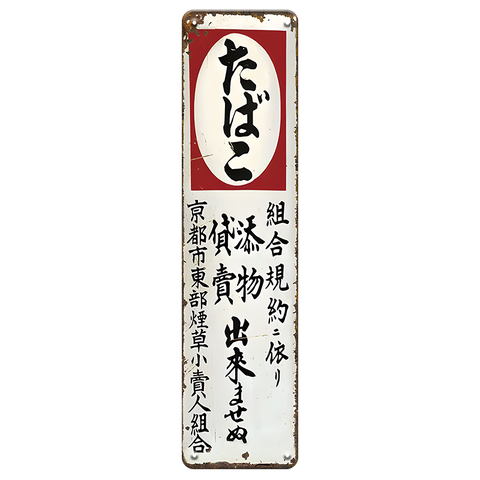 たばこ
組合規約ニ依リ
添物
貸賣
出來ませぬ
京都市東部煙草小賣人組合